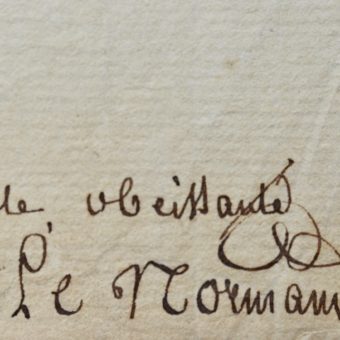 le, obeissante
Le Norman